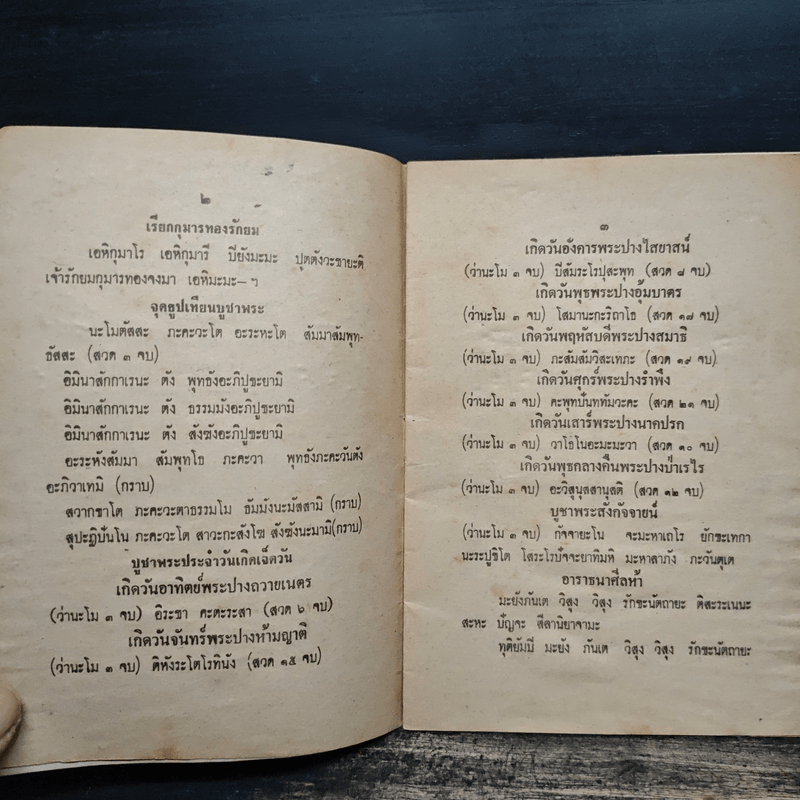 ๒
เรียกกุมารทองรักยม
เอหิกุมาโร เอหิกุมารี ปิยังมะมะ ปุตตังวะชายะติ
เจ้ารักยมกุมารทองจงมา เอหิมะมะ–ฯ
จุดธูปเทียนบูชาพระ
นะโมตัสสะ ภะคะวะโต อะระหะโต สัมมาสัมพุท-
ธัสสะ (สวด ๓ จบ)
อิมินาสักกาเรนะ ตัง พุทธังอะภิปูชะยามิ
อิมินาสักกาเรนะ ตัง ธรรมมังอะภิปูชะยามิ
อิมินาสักกาเรนะ ตัง สังฆังอะภิปูชะยามิ
อะระหังสัมมา สัมพุทโธ ภะคะวา พุทธังภะคะวันตัง
อะภิวาเทมิ (กราบ)
สวากขาโต ภะคะวะตาธรรมโม ธัมมังนะมัสสามิ (กราบ)
สุปะฏิปันโน ภะคะวะโต สาวะกะสังโฆ สังฆังนะมามิ(กราบ)
บูชาพระประจำวันเกิดเจ็ดวัน
เกิดวันอาทิตย์พระปางถวายเนตร
(ว่านะโม ๓ จบ) อิระชา คะตะระสา (สวด ๖ จบ)
เกิดวันจันทร์พระปางห้ามญาติ
(ว่านะโม ๓ จบ) ติหังระโตโรทินัง (สวด ๑๕ จบ)
๓
เกิดวันอังคารพระปางไสยาสน์
(ว่านะโม ๓ จบ) ปิสัมระโรปุสะพุท (สวด ๘ จบ)
เกิดวันพุธพระปางอุ้มบาตร
(ว่านะโม ๓ จบ) โสมานะกะริถาโธ (สวด ๑๗ จบ)
เกิดวันพฤหัสบดีพระปางสมาธิ
(ว่านะโม ๓ จบ) ภะสัมสัมวิสะเทภะ (สวด ๑๙ จบ)
เกิดวันศุกร์พระปางรำพึง
(ว่านะโม ๓ จบ) คะพุทปันททัมวะคะ (สวด ๒๑ จบ)
เกิดวันเสาร์พระปางนาคปรก
(ว่านะโม ๓ จบ) วาโธโนอะมะมะวา (สวด ๑๐ จบ)
เกิดวันพุธกลางคืนพระปางป่าเรไร
(ว่านะโม ๓ จบ) อะวิสุนุสสานุสติ (สวด ๑๒ จบ)
บูชาพระสังกัจจายน์
(ว่านะโม ๓ จบ) กัจจายะโน จะมะหาเถโร ยักขะเทกา
นะระปูชิโต โสระโรปัจจะยาทิมหิ มะหาลาภัง ภะวันตุเต
อาราธนาศีลห้า
มะยังภันเต วิสุง วิสุง รักขะนัตถายะ ติสะระเนนะ
สะหะ ปัญจะ สีลานิยาจามะ
ทุติยัมปี มะยัง ภันเต วิสุง วิสุง รักขะนัตถายะ